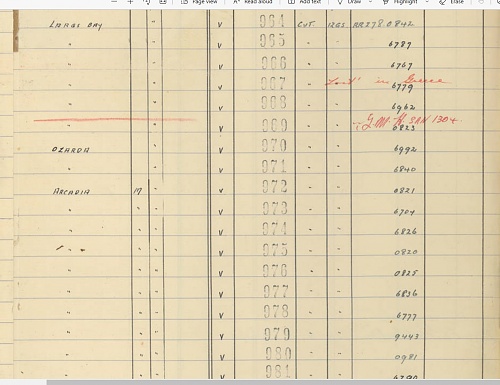 Page view Read aloud Add text Draw Highlight Erase
LARGS BAY " V 964 CUT IZGS AR278.0842
" " V 965 " " 6787
" " V 966 " " 6767
" " V 967 " " Lost in Greece 6779
" " V 968 " " 6962
" " V 969 " " G.M.R. SAN 1304. 6823
OZARDA " V 970 " " 6992
" " V 971 " " 6840
ARCADIA 17 " V 972 " " 0821
" " " V 973 " " 6704
" " " V 974 " " 6826
" " " V 975 " " 0820
" " " V 976 " " 0825
" " " V 977 " " 6836
" " " V 978 " " 6777
" " " V 979 " " 9443
" " " V 980 " " 0981
" " " V 981 " " 6790